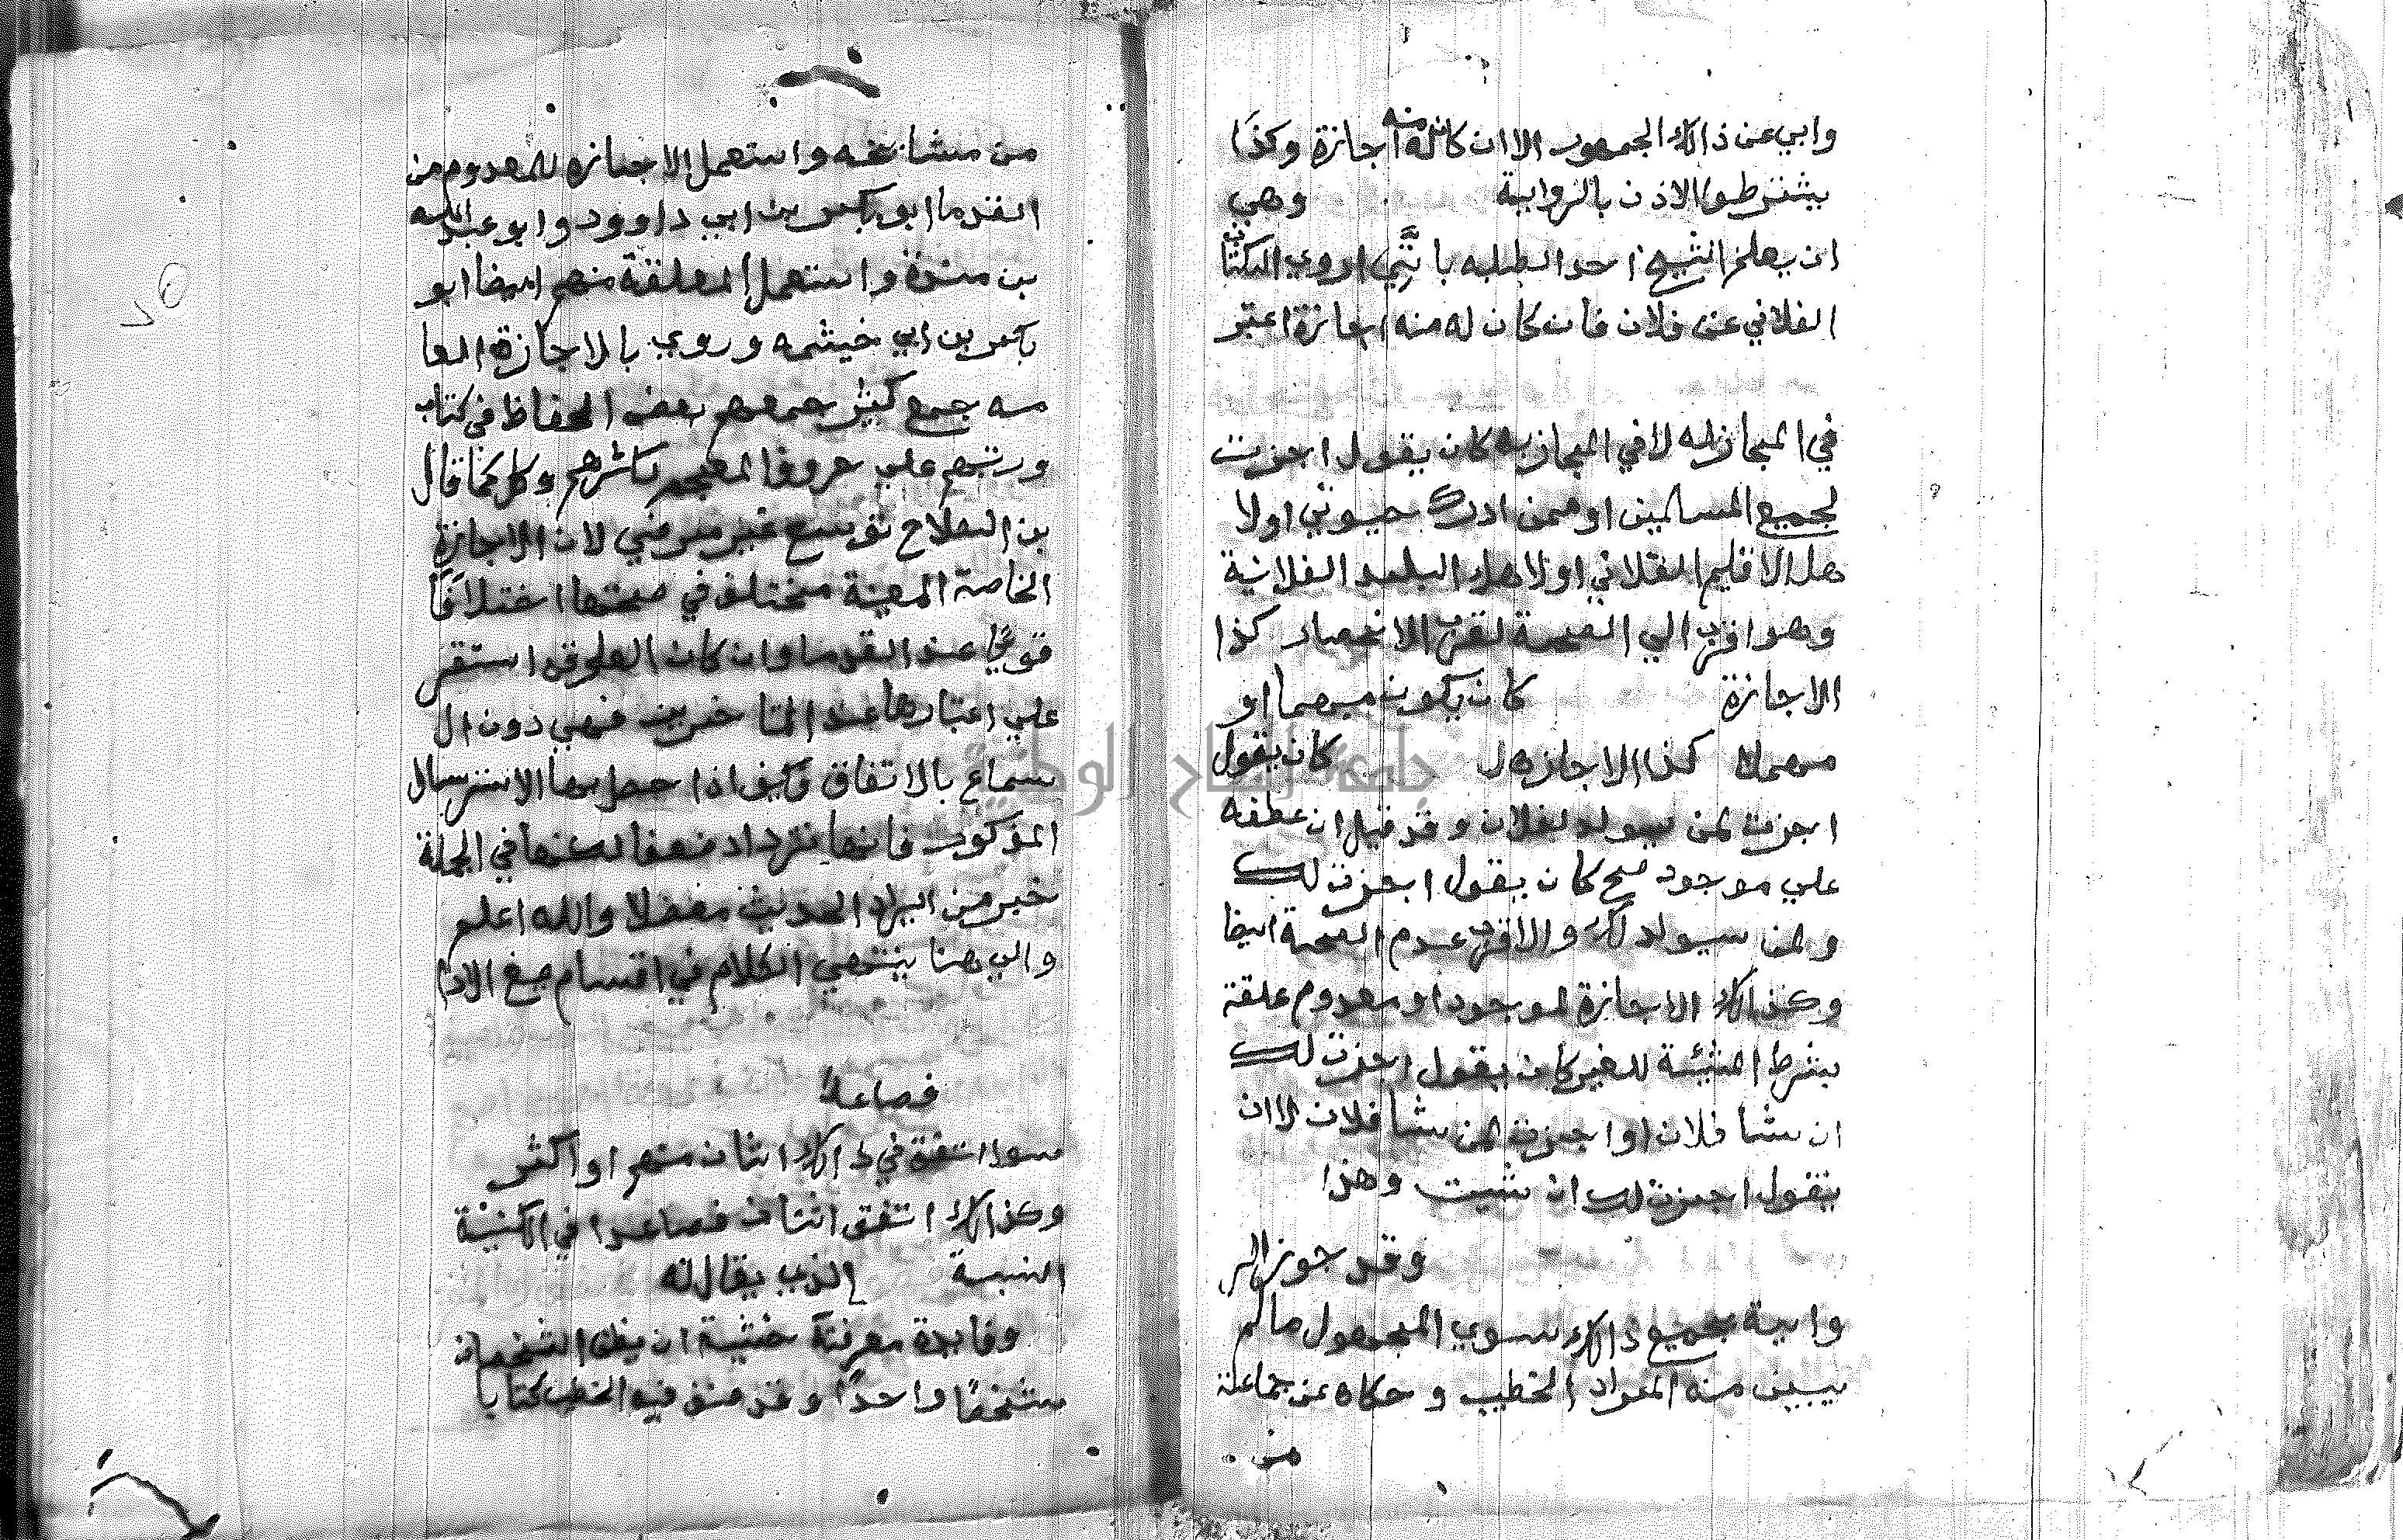 وابي عن ذالك الجمهور الا ان كان له منه اجازة وكذا
يشترطوا الاذن بالرواية وهي
ان يعلم الشيخ احد الطلبه بانني اروي الكتاب
الفلاني عن فلان فان كان له منه اجازة اعتبر
في المجاز له لا في المجاز به كان يقول اجزت
لجميع المسلمين او ممن ادرك حيوتي اولا
هل الاقليم الفلاني اولاهل البلد الفلانية
وهو اقرب الي الصحة لقرب الانحصار كذا
الاجازة كان يكون مبهما او
مهملا كذا الاجازه ل كان يقول
اجزت لمن سيولد لفلان وقد قيل ان عطفه
علي موجود صح كان يقول اجزت لك
ولمن سيولد لك والاقرب عدم الصحة ايضا
وكذالك الاجازة لموجود او معدوم علقة
بشرط المشيئة للغير كان يقول اجزت لك
ان شا فلان او اجزت لمن شا فلان لا ان
يقول اجزت لك ان شيت وهذا
وقد جوز الر
واية بجميع ذالك سوي المجهول ما لم
يتبين منه المراد الخطيب وحكاه عن جماعة
من
من مشايخه واستعمل الاجازه للمعدوم من
القدما ابو بكر بن ابي داوود وابو عبد الله
بن مندة واستعمل المعلقة منهم ايضا ابو
بكر بن ابي خيثمه وروي بالاجازة العا
مه جمع كثير جمعهم بعض الحفاظ في كتاب
ورتبهم علي حروف المعجم لكثرهم وكل كما قال
بن الصلاح توسع غير مرضي لان الاجازة
الخاصة المعينة مختلف في صحتها اختلافا
قويا عند القدما وان كان العمل استقر
علي اعتبارها عند المتاخرين فهي دون ال
سماع بالاتفاق فكيف اذا حصل بها الاسترسال
المذكور فانها تزداد ضعفا لكنها في الجملة
خير من ايراد الحديث معضلا والله اعلم
والي هنا ينتهي الكلام في اقسام صيغ الادا
فصاعدا
سوا اتفق في ذالك اثنان منهم او اكثر
وكذالك اتفق اثنان فصاعدا في الكنية
النسبة الذي يقال له
وفايدة معرفته خشية ان يظن الشخصان
شخصا واحدا وقد صنف فيه الخطيب كتابا
جامعة النجاح الوطنية